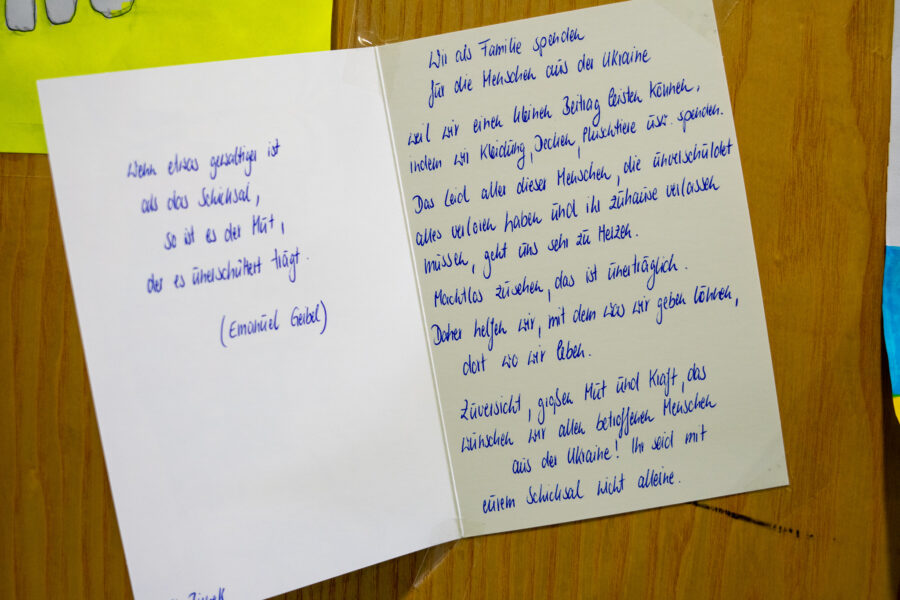 Wenn etwas gewaltiger ist
als das Schicksal,
so ist es der Mut,
der es unerschüttert trägt.
(Emanuel Geibel)
Wir als Familie spenden
für die Menschen aus der Ukraine
weil wir einen kleinen Beitrag leisten können,
indem wir Kleidung, Decken, Plüschtiere usw. spenden.
Das Leid aller dieser Menschen, die unverschuldet
alles verloren haben und ihr zuhause verlassen
müssen, geht uns sehr zu Herzen.
Machtlos zusehen, das ist unerträglich.
Daher helfen wir, mit dem was wir geben können,
dort wo wir leben.
Zuversicht, großen Mut und Kraft, das
wünschen wir allen betroffenen Menschen
aus der Ukraine! Ihr seid mit
eurem Schicksal nicht alleine.